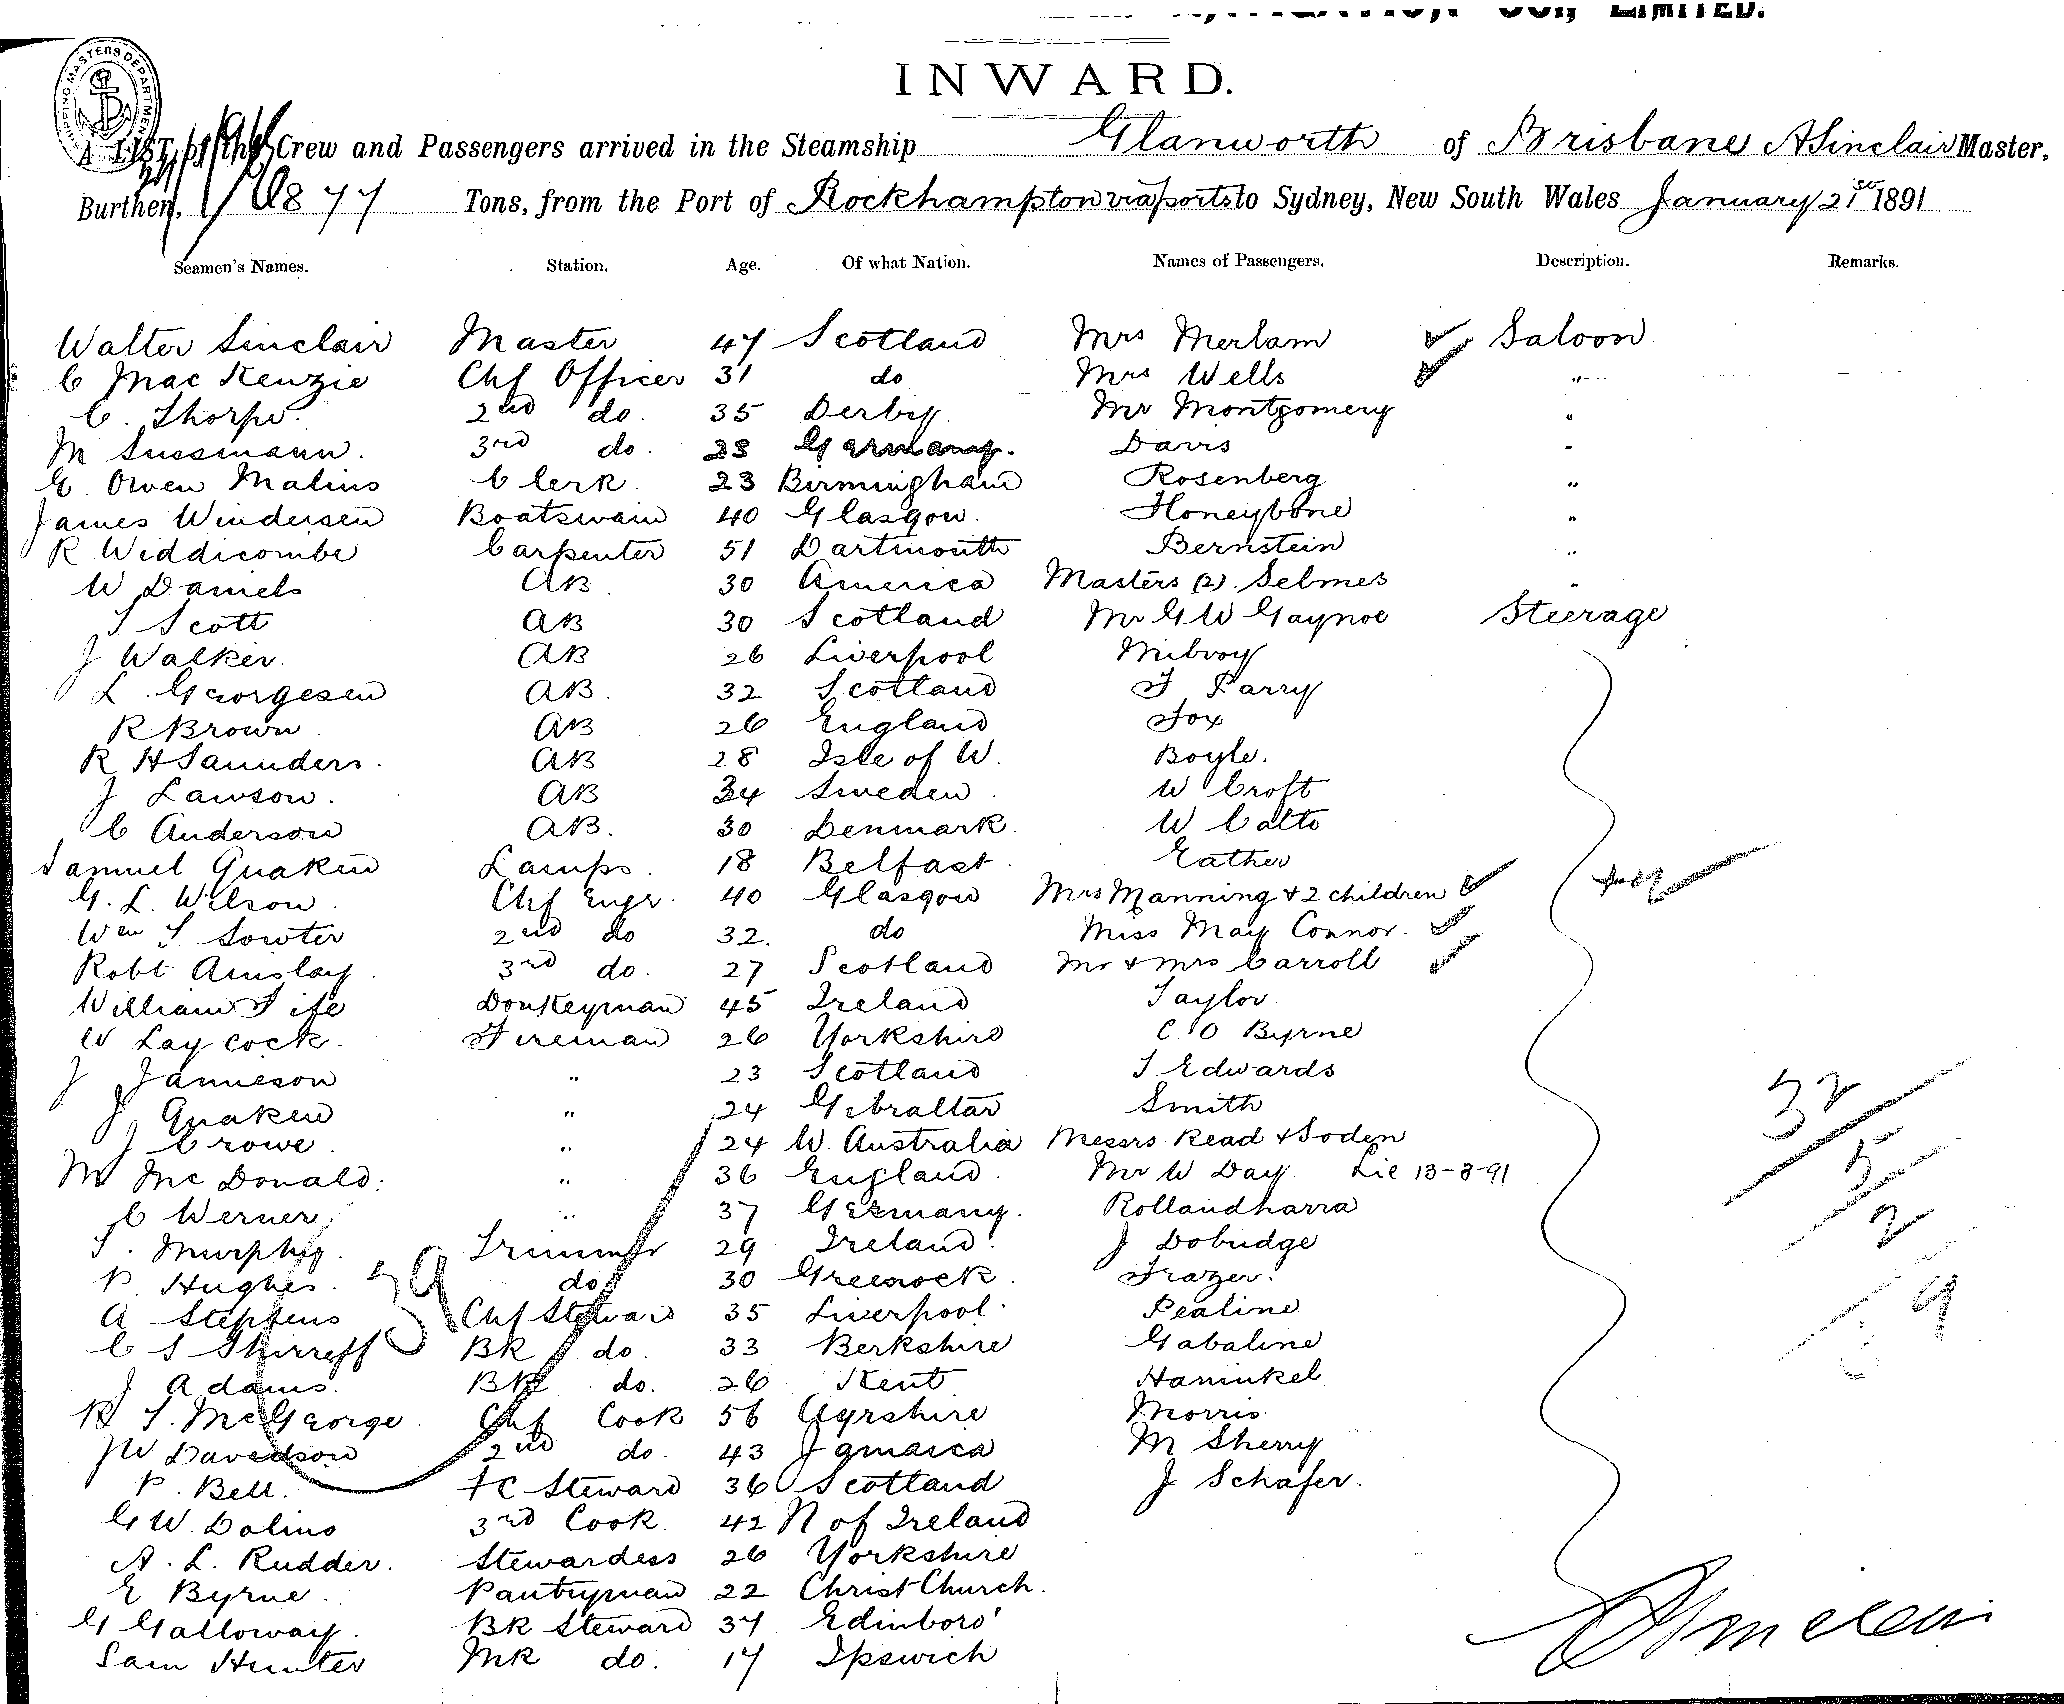 LIMITED.
SHIPPING MASTERS DEPARTMENT
INWARD.
A LIST of the Crew and Passengers arrived in the Steamship Glanworth of Brisbane A Sinclair Master,
Burthen, 877 Tons, from the Port of Rockhampton via ports to Sydney, New South Wales January 21st 1891
Seamen's Names. Station. Age. Of what Nation. Names of Passengers. Description. Remarks.
Walter Sinclair Master 47 Scotland Mrs Merlam Saloon
C MacKenzie Chf Officer 31 do Mrs Wells "
C. Thorpe. 2nd do. 35 Derby Mr Montgomery "
M Sussmann. 3rd do. 28 Germany. Davis "
G. Owen Malins Clerk 23 Birmingham Rosenberg "
James Windersen Boatswain 40 Glasgow. Honeybone "
R Widdicombe Carpenter 51 Dartmouth Bernstein "
W Daniels AB 30 America Masters (2). Selmes "
T Scott AB 30 Scotland Mr G W Gaynoe Steerage
J Walker. AB 26 Liverpool
L. Georgesen AB. 32 Scotland F Parry
R Brown AB 26 England Fox
R H Saunders. AB 28 Isle of W. Boyle.
J Lawson. AB 34 Sweden W Croft
C Anderson AB. 30 Denmark. W Calto
Samuel Quaken Lamps. 18 Belfast. Eather
G. L. Wilson. Chf Engr. 40 Glasgow Mrs Manning & 2 children
Wm T Sowter 2nd do 32. do Miss May Connor.
Robt Ainslay 3rd do. 27 Scotland Mr & Mrs Carroll
William Fife Donkeyman 45 Ireland Taylor
W Laycock. Fireman 26 Yorkshire C O Byrne
J Jamieson " 23 Scotland T Edwards
J Quaken " 24 Gibraltar Smith
J Crowe. " 24 W. Australia Messrs Read & Soden
M McDonald. " 36 England. Mr W Day Lie 13-8-91
C Werner " 37 Germany. Rollandharra
T. Murphy. Trimmer 29 Ireland. J Dobudge
P. Hughes. do 30 Greenock. Frazer.
A Stephens Chf Steward 35 Liverpool. Pealine
C S Shirreff BK do. 33 Berkshire Gabaline
J Adams. BK do. 26 Kent Haninkel
R T. McGeorge Chf Cook 56 Ayrshire Morris
JW Davedson 2nd do 43 Jamaica M Sherry
P. Bell. FC Steward 36 Scotland J Schafer.
G W. Dolins 3rd Cook 42 N of Ireland
A. L. Rudder. Stewardess 26 Yorkshire
E Byrne Pantryman 22 Christ Church.
G Galloway. BK Steward 37 Edinboro'
Sam Hunter MK do. 17 Ipswich
39
32
5
2
ASinclair